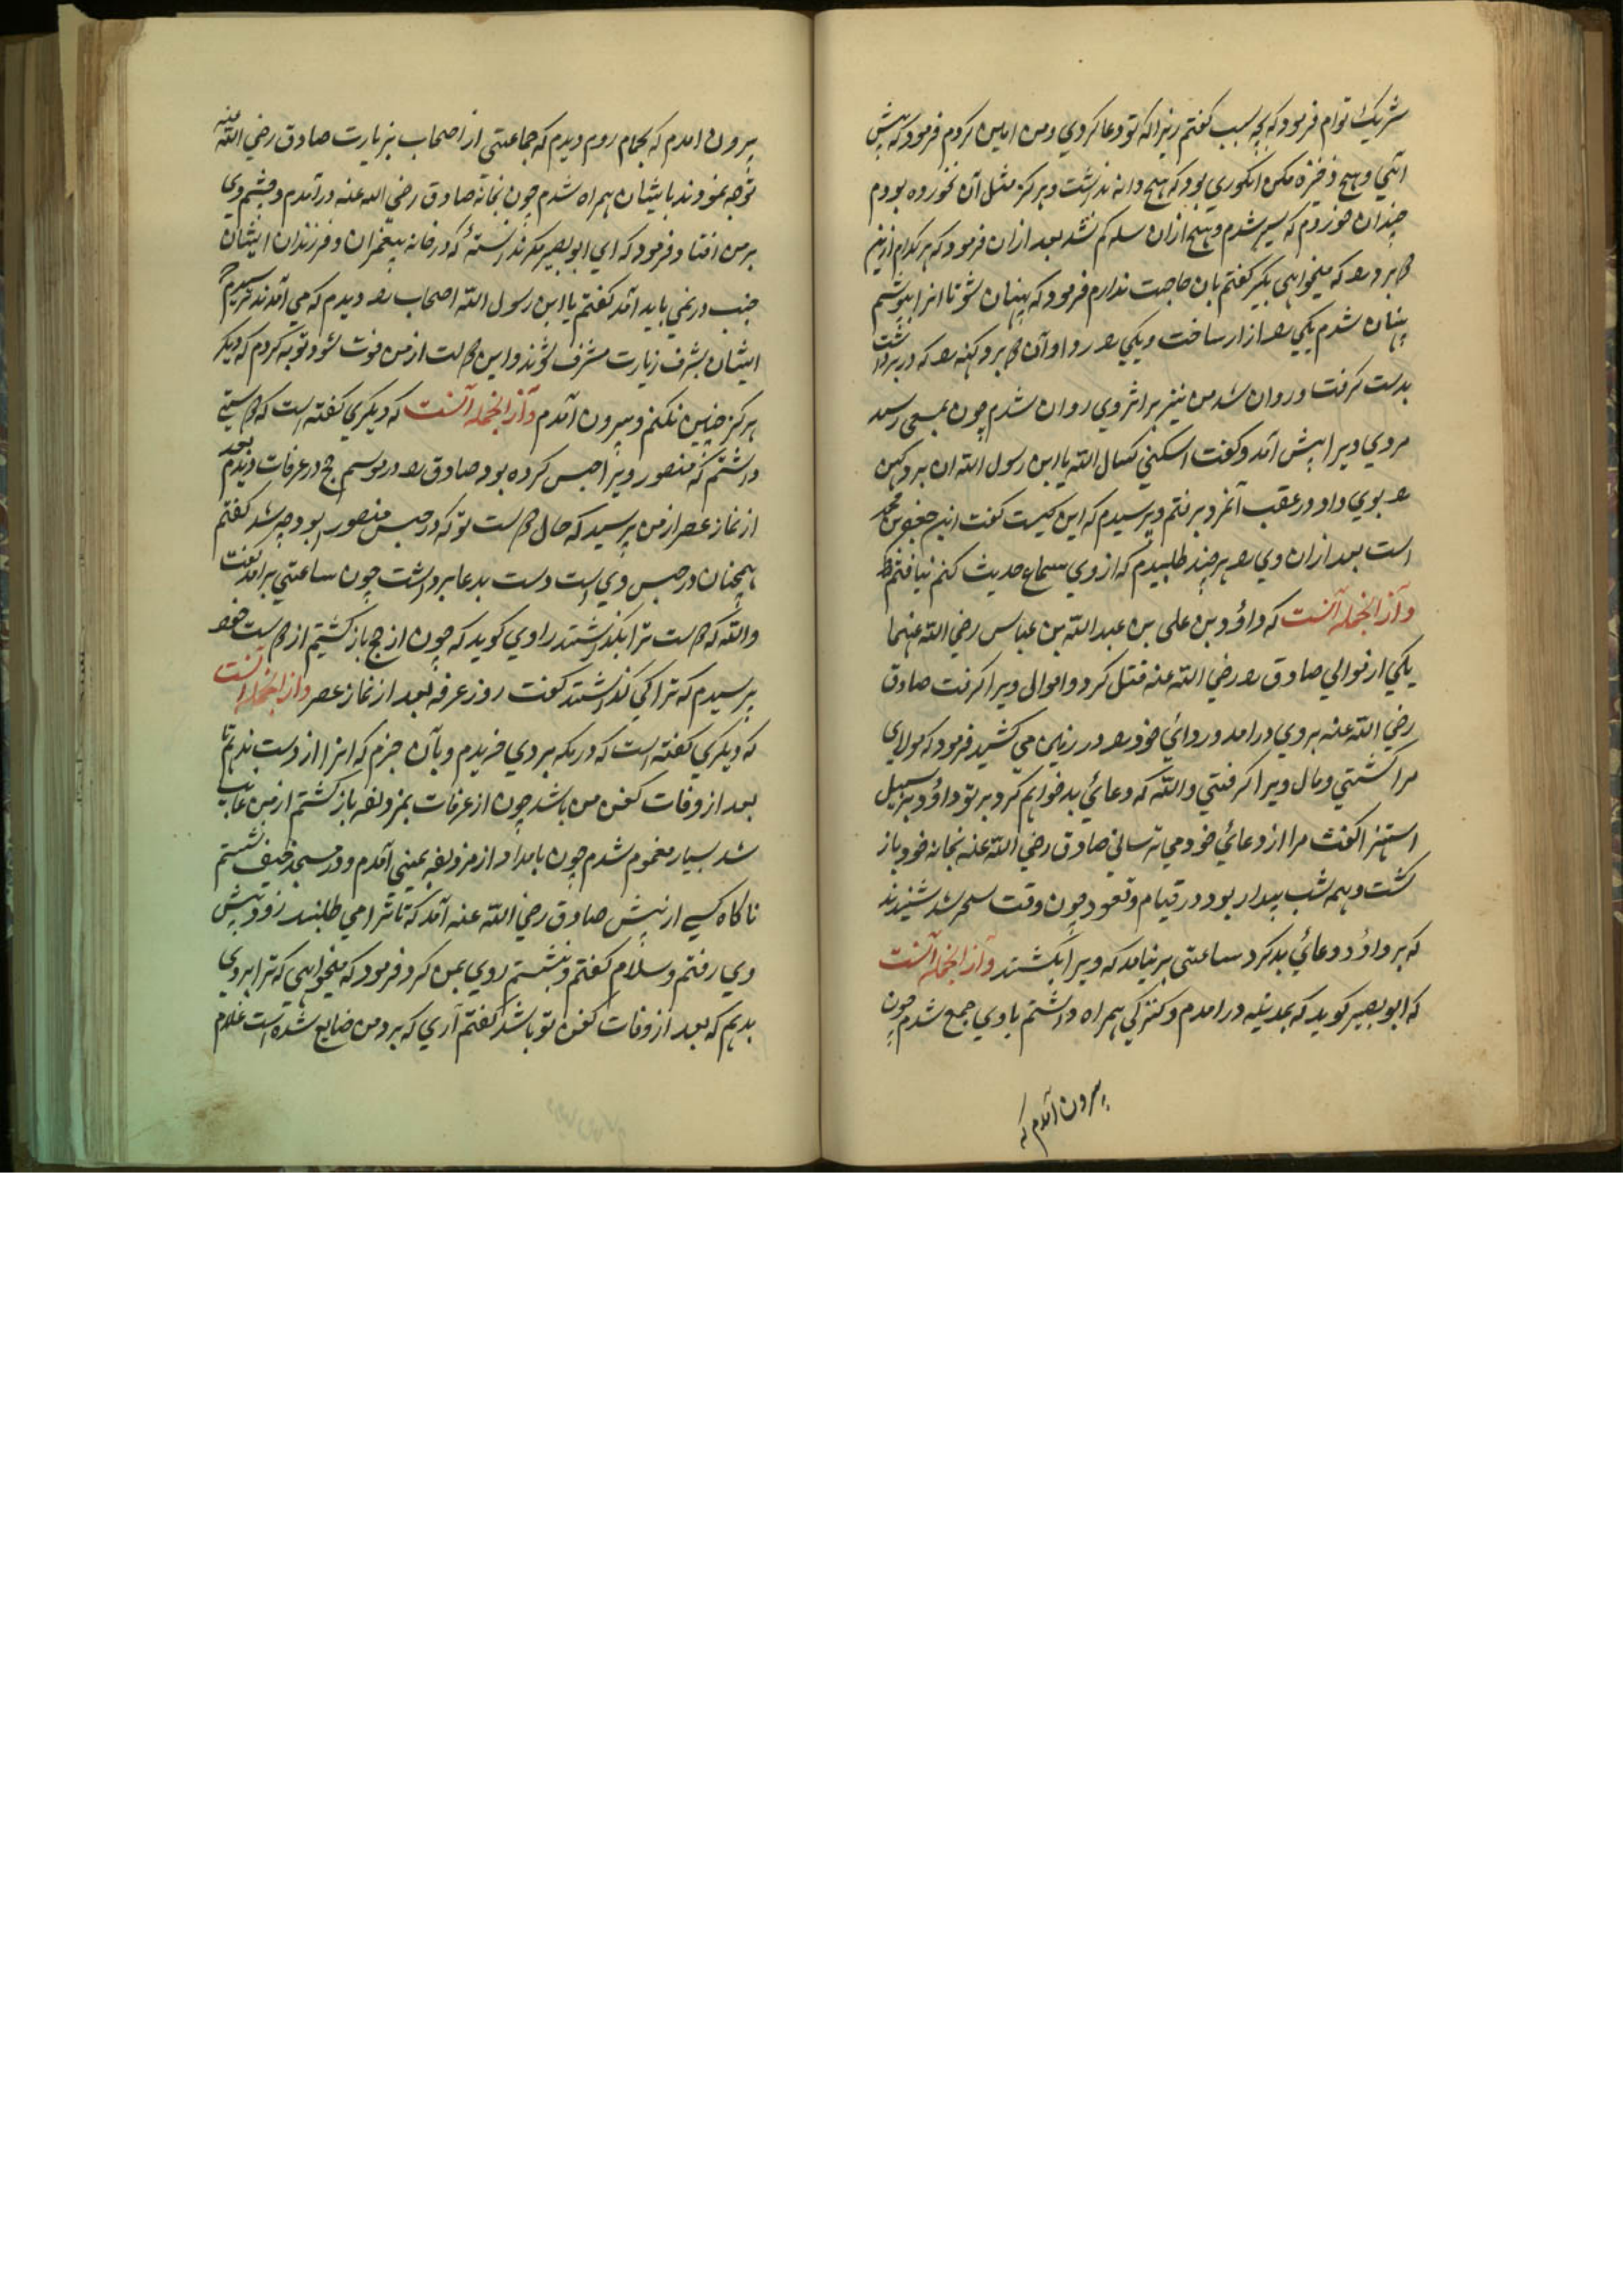 شریک توام فرمود که بچه سبب گفتم زیرا که تو دعا کردی و من امین کردم فرمود که پیش
آئی و هیچ ذخیره مکن انگوری بود که هیچ دانه نداشت و هرگز مثل آن نخورده بودم
چندان خوردم که سیر شدم و هیچ ازان سله کم نشد بعد ازان فرمود که هر کدام ازین
دو برد را که میخواهی بگیر گفتم بآن حاجت ندارم فرمود که پنهان شو تا انرا بپوشیم
پنهان شدم یکی را ازار ساخت و یکی را ردا و آن دو برد کهنه را که در بر داشت
بدست گرفت و روان شد من نیز بر اثر وی روان شدم چون بمسعی رسید
مردی ویرا پیش آمد و گفت اکسنی کساک الله یا ابن رسول الله ان برد کهن
را بوی داد در عقب آنمرد برفتم و پرسیدم که این کیست گفت این جعفر بن محمد
است بعد ازان وی را هر چند طلبیدم که از وی سماع حدیث کنم نیافتم
و از انجمله آنست که داؤد بن علی بن عبد الله بن عباس رضی الله عنهما
یکی از موالی صادق را رضی الله عنه قتل کرد و اموال ویرا گرفت صادق
رضی الله عنه بر وی درامد و ردائی خود را در زمین می کشید فرمود که مولای
مرا کشتی و مال ویرا گرفتی والله که دعائی بد خواهم کرد بر تو داؤد بر سبیل
استهزا گفت مرا از دعائی خود می ترسانی صادق رضی الله عنه بخانه خود باز
گشت و همه شب بیدار بود در قیام و قعود چون وقت سحر شد شنیدند
که بر داؤد دعائی بد کرد ساعتی بر نیامد که ویرا بکشتند و از انجمله آنست
که ابو بصیر گوید که بمدینه درامدم و کنیزکی همراه داشتم با وی جمع شدم چون
بیرون آمدم که
بیرون امدم که بحمام روم دیدم که جماعتی از اصحاب بزیارت صادق رضی الله عنه
توجه نمودند با یشان همراه شدم چون بخانه صادق رضی الله عنه درآمدم و چشم وی
بر من افتاد فرمود که ای ابو بصیر مگر ندانستهٔ که در خانه پیغمبران و فرزندان ایشان
جنب در نمی باید آمد گفتم یا ابن رسول الله اصحاب را دیدم که می آمدند ترسیدم
ایشان بشرف زیارت مشرف شوند و این دولت از من فوت شود توبه کردم که دیگر
هرگز چنین نکنم و بیرون آمدم و از انجمله آنست که دیگری گفته است که دوستی
داشتم که منصور ویرا حبس کرده بود صادق را در موسم حج در عرفات دیدم بعد
از نماز عصر از من پرسید که حال دوست تو که در حبس منصور بود چه شد گفتم
همچنان در حبس وی است دست بدعا برداشت چون ساعتی برآمد گفت
والله که دوست ترا بگذاشتند راوی گوید که چون از حج باز گشتیم از دوست خود
پرسیدم که ترا کی گذاشتند گفت روز عرفه بعد از نماز عصر و از انجمله آنست
که دیگری گفته است که در مکه بردی خریدم و بآن جزم که انرا از دست ندهم تا
بعد از وفات کفن من باشد چون از عرفات بمزدلفه باز گشتم از من غایب
شد بسیار مغموم شدم چون بامداد از مزدلفه بمنی آمدم و در مسجد خیف نشستم
ناگاه کسی از پیش صادق رضی الله عنه آمد که تا ترا می طلبند زود پیش
وی رفتم و سلام گفتم و بنشستم روی بمن کرد فرمود که میخواهی که ترا بردی
بدهم که بعد از وفات کفن تو باشد گفتم آری که برد من ضایع شده است غلام